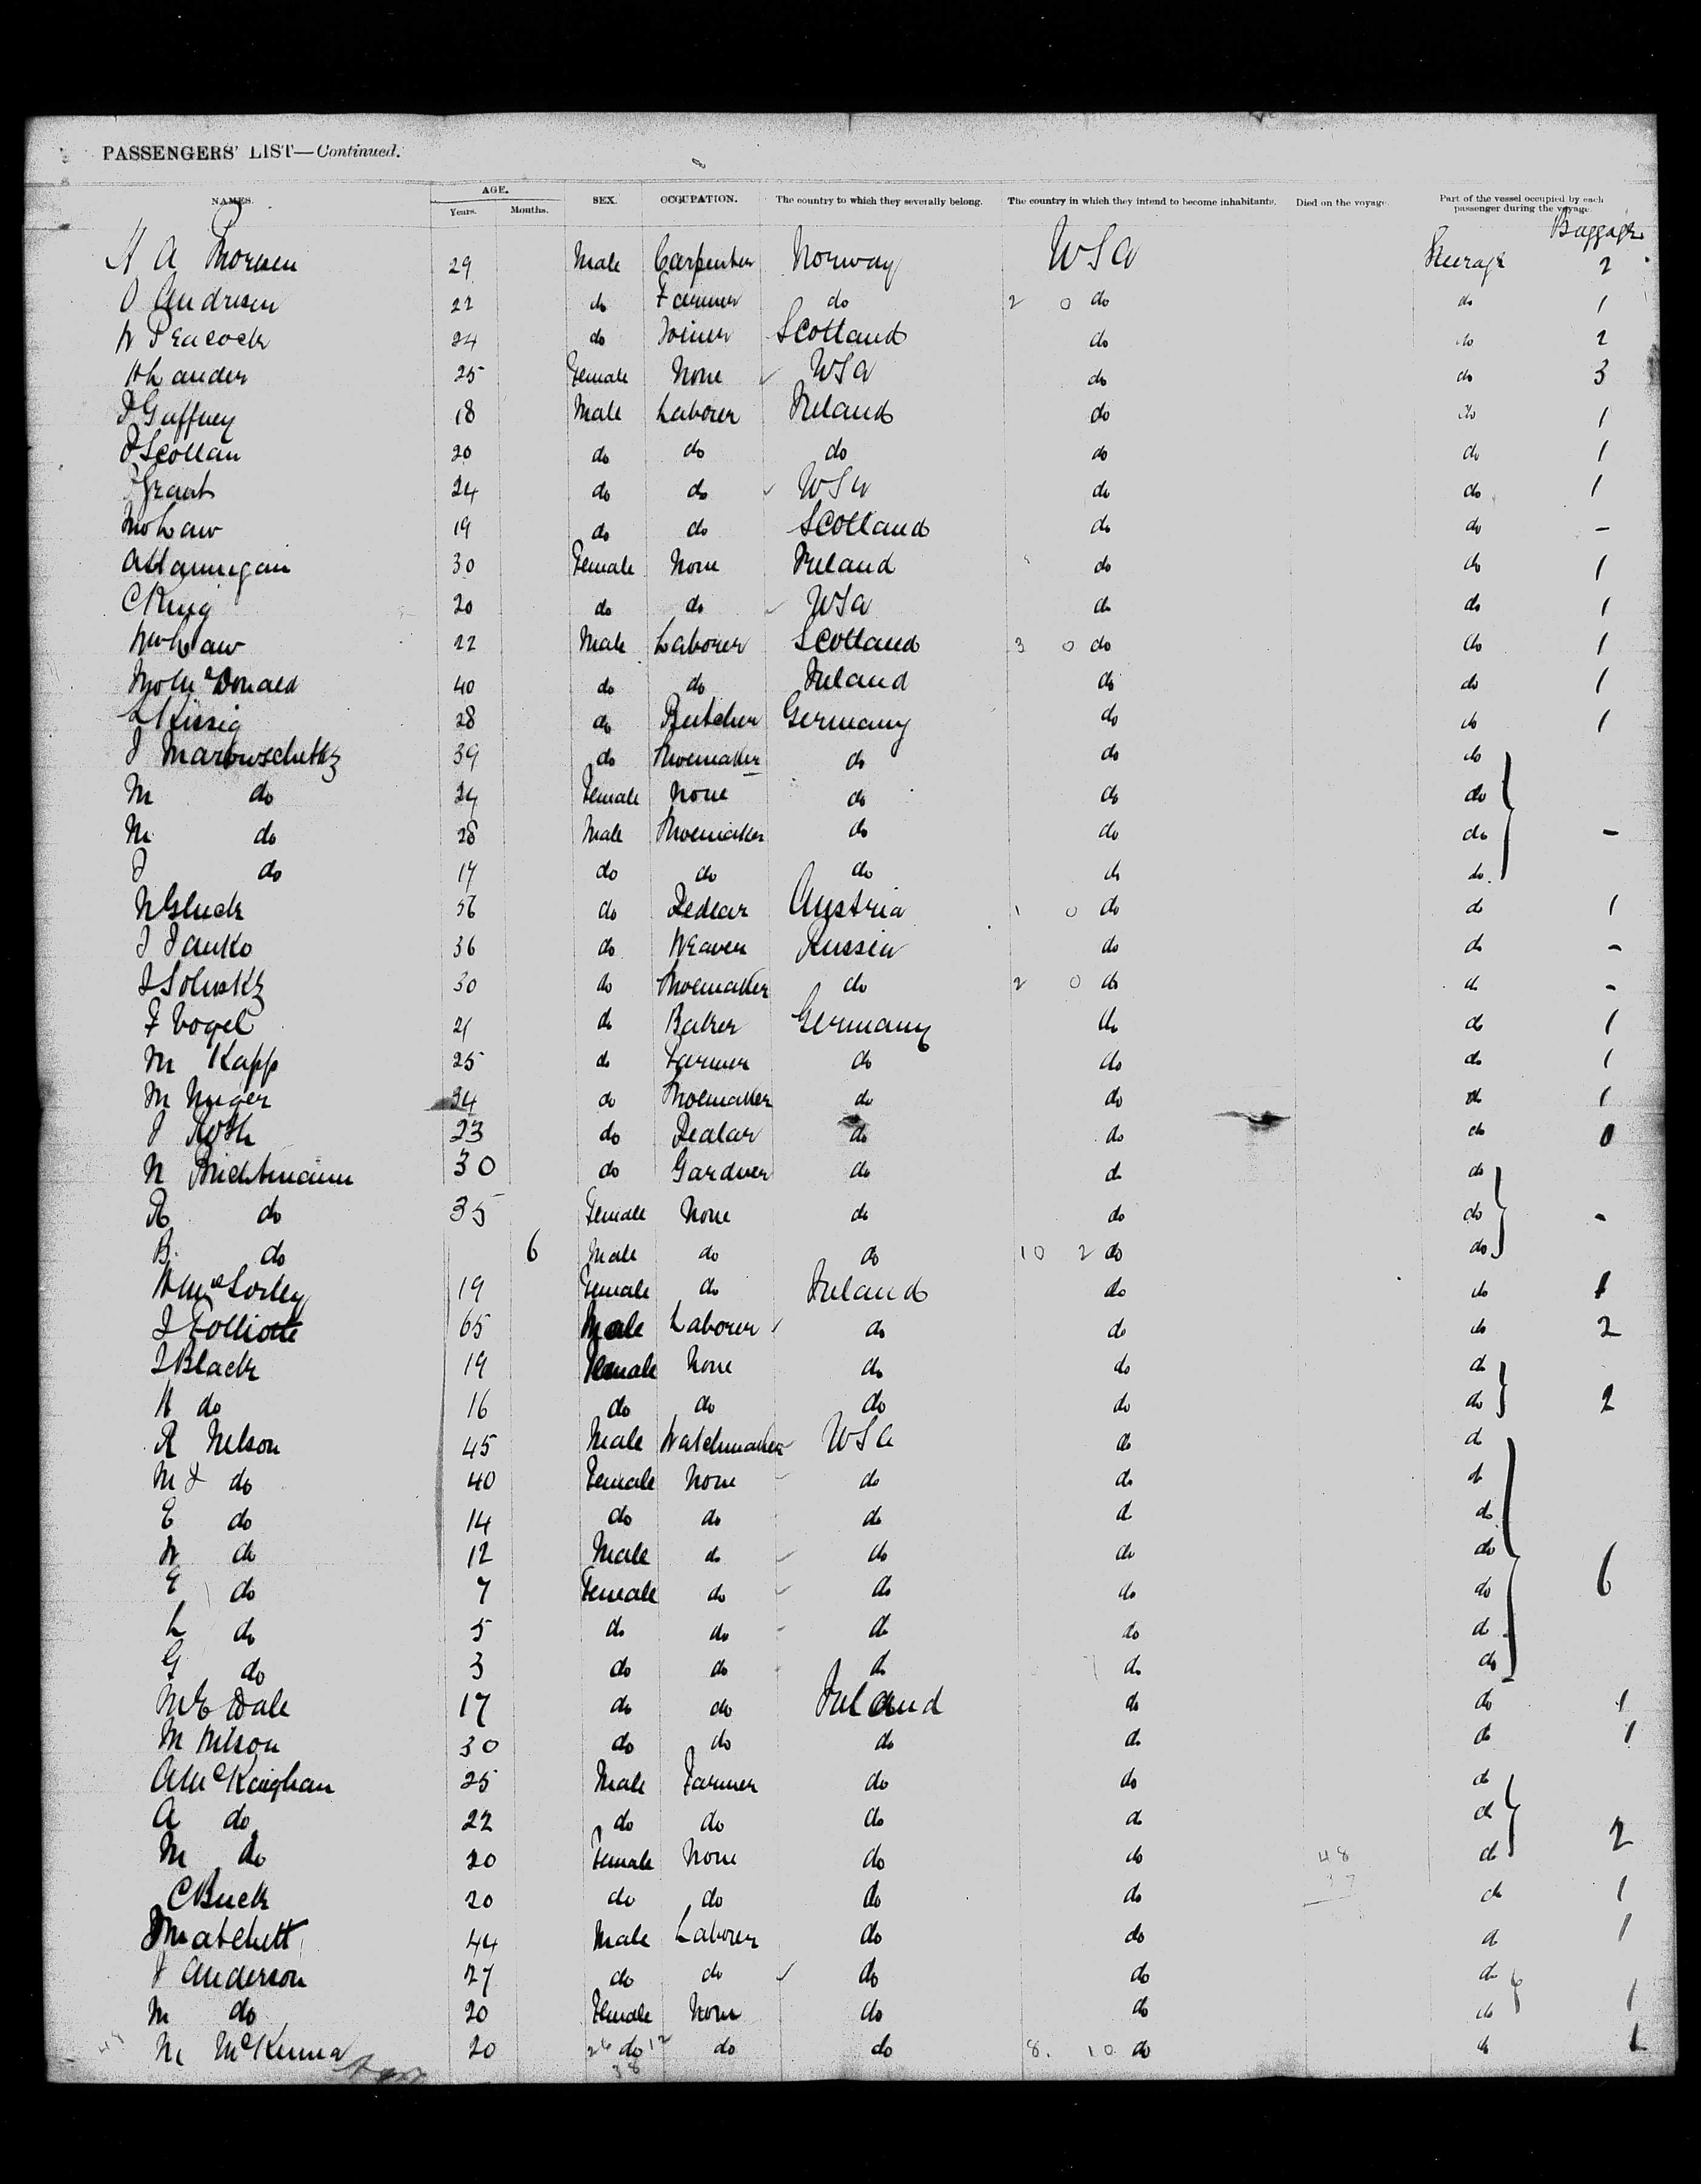 PASSENGERS' LIST—Continued.
NAMES. AGE. Years. Months. SEX. OCCUPATION. The country to which they severally belong. The country in which they intend to become inhabitants. Died on the voyage. Part of the vessel occupied by each passenger during the voyage. Baggage
H A Thorsen 29 Male Carpenter Norway USA Steerage 2
O Andresen 22 do Farmer do 2 0 do do 1
W Peacock 24 do Joiner Scotland do do 2
H Lander 25 Female None USA do do 3
J Gaffney 18 Male Laborer Ireland do do 1
P Scollan 20 do do do do do 1
Grant 24 do do USA do do 1
Law 19 do do Scotland do do –
A Hannigan 30 Female None Ireland do do 1
C King 20 do do USA do do 1
Wm Law 22 Male Laborer Scotland 3 0 do do 1
McDonald 40 do do Ireland do do 1
28 do Butcher Germany do do 1
J 39 do Shoemaker do do do
M do 24 Female None do do do
M do 28 Male Shoemaker do do do –
J do 17 do do do do do
N Gluck 56 do Pedlar Austria 1 0 do do 1
J Janko 36 do Weaver Russia do do –
J 30 do Shoemaker do 2 0 do do –
F Vogel 21 do Baker Germany do do 1
M Kapp 25 do Farmer do do do 1
M Unger 24 do Shoemaker do do do 1
J Roth 23 do do do do 0
N 30 do Gardner do do do
R do 35 Female None do do do –
B do 6 Male do do 10 2 do do
McSorley 19 Female do Ireland do do 1
J Folliotte 65 Male Laborer do do do 2
J Black 19 Female None do do do
H do 16 do do do do do 2
R Nelson 45 Male Watchmaker USA do do
M J do 40 Female None do do do
E do 14 do do do do do
W do 12 Male do do do do
E do 7 Female do do do do 6
L do 5 do do do do do
G do 3 do do do do do
M E Dale 17 do do Ireland do do 1
M Wilson 30 do do do do do 1
A McKeighan 25 Male Farmer do do do
A do 22 do do do do do 2
M do 20 Female None do do 48 do
C Buck 20 do do do do do 1
J Matchett 44 Male Laborer do do do 1
J Anderson 27 do do do do do
M do 20 Female None do do do 1
M McKenna 20 26 do 12 do do 8. 10 do do 1
38